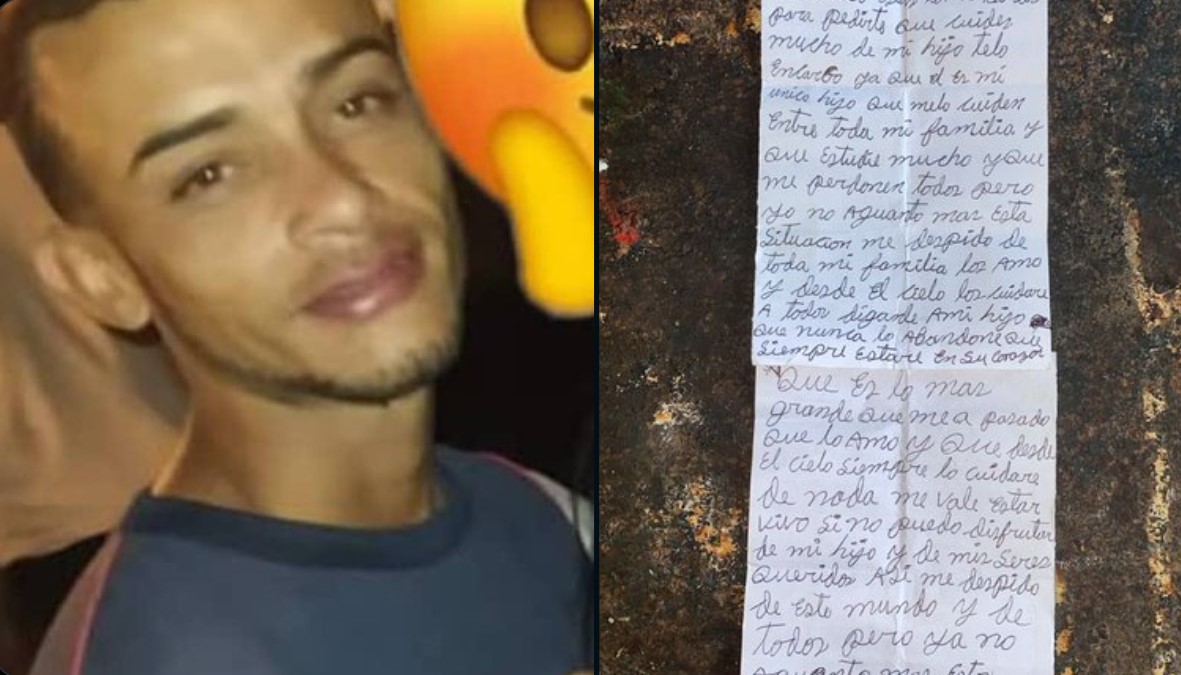 para pedirte que cuides
mucho de mi hijo telo
Encargo ya que el Es mi
unico hijo que melo cuiden
Entre toda mi familia y
que Estudie mucho y que
me perdonen todos pero
yo no Aguanto mas Esta
Situacion me despido de
toda mi familia los Amo
y desde El cielo los cuidare
A todos digande Ami hijo
que nunca lo Abandone que
Siempre Estare En Su corason
Que Es lo mas
grande que me a pasado
que lo Amo y que desde
El cielo Siempre lo cuidare
de nada me vale Estar
vivo Si no puedo disfrutar
de mi hijo y de mis Seres
queridos ASi me despido
de Este mundo y de
todos pero ya no
Aguanto mas Esta